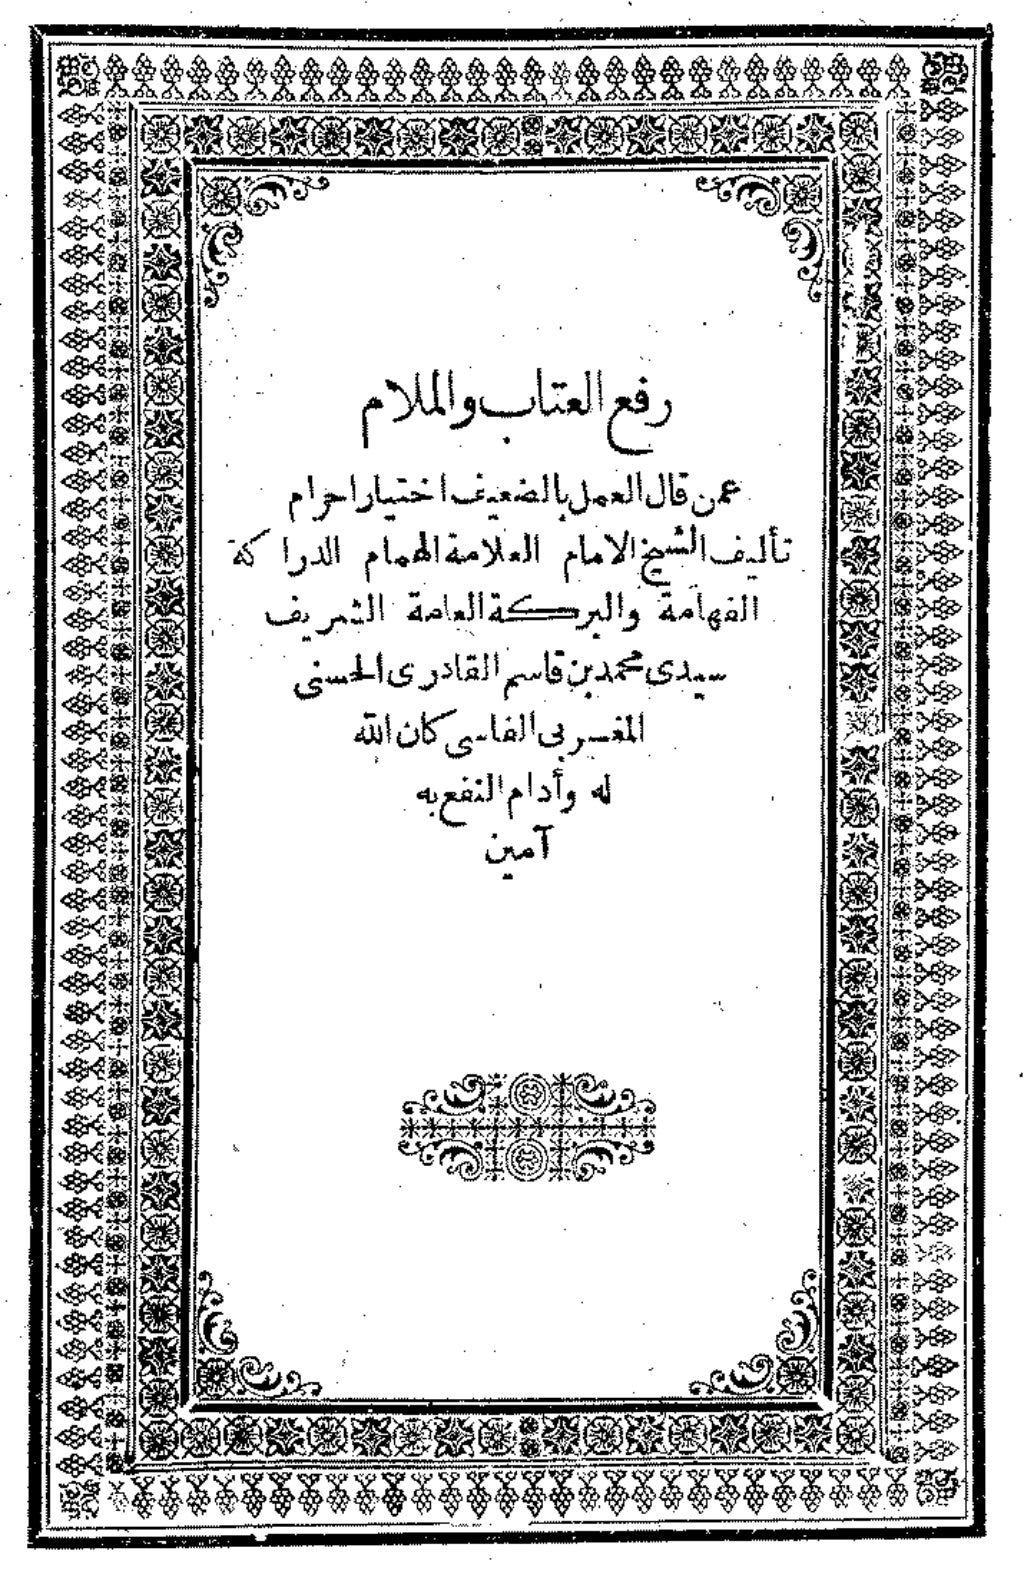 رفع العتاب والملام
عمن قال العمل بالضعيف اختيارا حرام
تأليف الشيخ الامام العلامة الهمام الدراكة
الفهامة والبركة العامة الشريف
سيدى محمد بن قاسم القادرى الحسنى
المغربى الفاسى كان الله
له وأدام النفع به
آمين